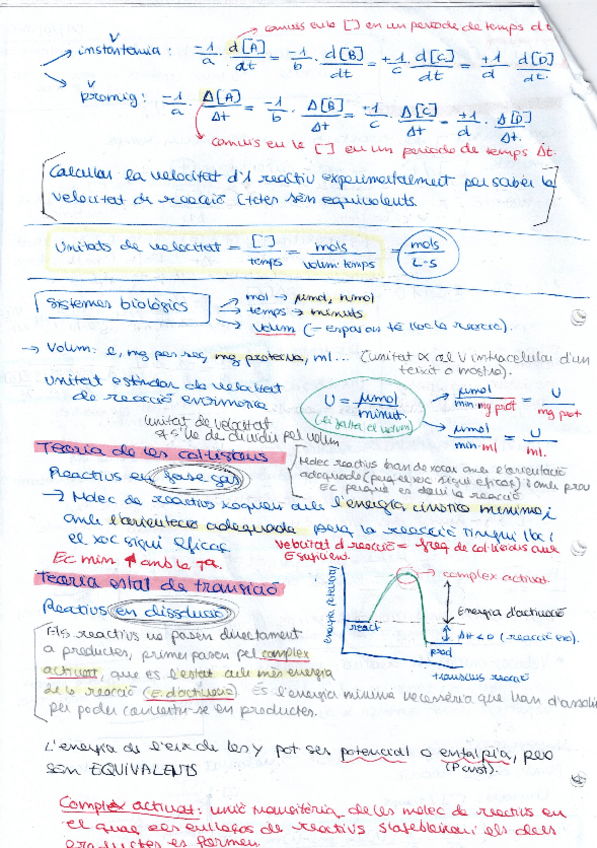 canvis en la [ ] en un període de temps dt
v instantània: -1/a · d[A]/dt = -1/b · d[B]/dt = +1/c d[C]/dt = +1/d d[D]/dt
v promig: -1/a · Δ[A]/Δt = -1/b · Δ[B]/Δt = +1/c · Δ[C]/Δt = +1/d · Δ[D]/Δt.
canvis en la [ ] en un període de temps Δt.
Calcular la velocitat d'1 reactiu experimentalment per saber la
velocitat de reacció (totes són equivalents.
Unitats de velocitat = [ ]/temps = mols/volum·temps = mols/L·s
Sistemes biològics
mol → μmol, nmol
temps → minuts
volum (- espai on té lloc la reacció).
→ Volum: l, mg pes sec, mg proteïna, ml... (unitat ∝ al V intracel·lular d'un
teixit o mostra).
Unitat estàndar de velocitat
de reacció enzimàtica
U = μmol/minut.
(li falta el volum)
μmol/min·mg prot = U/mg prot
μmol/min·ml = U/ml.
unitat de velocitat
s'ha de dividir pel volum
Teoria de les col·lisions
Reactius en fase gas
Molec reactius han de xocar amb l'orientació
adequada (perquè el xoc sigui eficaç) i amb prou
Ec perquè es doni la reacció
→ Molec de reactius xoquen amb l'energia cinètica mínima i
amb l'orientació adequada perq la reacció tingui lloc i
el xoc sigui eficaç.
Velocitat d reacció = freq de col·lisions amb
E suficient.
Ec min ↑ amb la Tª.
Teoria estat de transició
Reactius en dissolució
Energia potencial
complex activat.
Energia d'activació
react
ΔH<0 (reacció exo).
prod
transcurs reacció
Els reactius no passen directament
a productes, primer passen pel complex
activat, que és l'estat amb més energia
de la reacció (E. d'activació). És l'energia mínima necessària que han d'assolir
per poder convertir-se en productes.
L'energia de l'eix de les y pot ser potencial o entalpia, però
(P const).
són EQUIVALENTS
Complex activat: unió transitòria de les molec de reactius en
el qual els enllaços de reactius s'afebleixen i els dels
productes es formen.